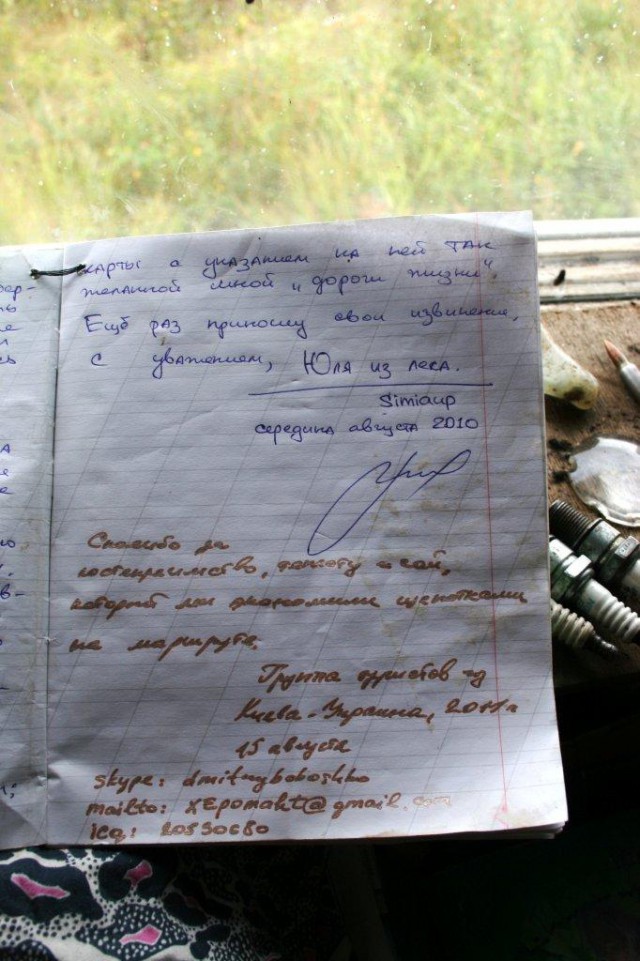 карты с указанием на ней так
желанной мной "дороги жизни".
Ещё раз приношу свои извинения,
с уважением, Юля из леса.
Simiaup
середина августа 2010
Спасибо за
гостеприимство, теплоту и чай,
который мы экономили щепотками
на маршруте.
Группа туристов из
Киева-Украина, 2011г
15 августа
skype: dmitryboboshko
mailto: @gmail.com
icq: 20590680